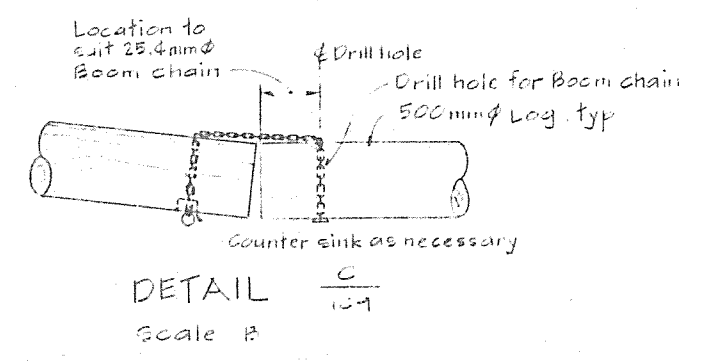 Location to
suit 25.4mm ø
Boom chain
℄ Drill hole
Drill hole for Boom chain
500mmø Log . typ
Counter sink as necessary
DETAIL C
Scale B